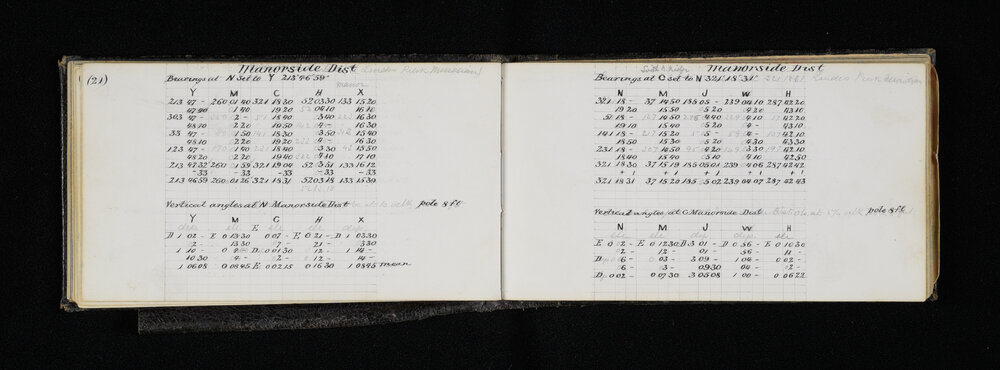 (21)
Manorside Dist
Bearings at N Set to Y 213°46'59"
manor
Y M C H X
213 47 - 260 01 40 321 18 30 52 03 30 133 15 20
47 40 1 40 19 20 04 10 16 10
303 47 - 2 - 18 40 3 40 16 30
48 10 2 20 19 50 4 - 16 30
33 47 - 1 50 18 30 3 50 15 40
48 10 2 20 19 20 4 - 16 30
123 47 - 1 40 18 40 3 30 15 50
48 20 2 20 19 40 4 10 17 10
213 47 32 260 1 59 321 19 04 52 3 51 133 16 12
-33 -33 -33 -33 -33
213 46 59 260 01 26 321 18 31 52 03 18 133 15 30
Vertical angles at N Manorside Dist pole 8 ft
Y M C H X
D 1 02 - E 0 13 30 0 07 - E 0 21 - D 1 03 30
2 - 13 30 7 - 21 - 3 30
1 10 - 0 4 - D 0 01 30 12 - 1 14 -
10 30 4 - 2 - 12 - 14 -
1 06 08 0 08 45 E 0 02 15 0 16 30 1 08 45 mean
Manorside Dist
Bearings at C set to N 321°18'31"
N M J W H
321 18 - 37 14 50 185 05 - 239 04 10 287 42 20
19 20 15 50 5 20 4 20 43 10
51 18 - 14 50 4 40 4 10 42 20
19 10 15 40 5 20 4 - 43 10
141 18 - 15 20 5 - 4 - 42 10
18 50 15 30 5 20 4 30 43 30
231 18 - 14 50 4 20 3 30 42 10
18 40 15 40 5 10 4 10 42 50
321 18 30 37 15 19 185 05 01 239 4 06 287 42 42
+ 1 + 1 + 1 + 1 + 1
321 18 31 37 15 20 185 5 02 239 04 07 287 42 43
Vertical angles at C Manorside Dist pole 8 ft
N M J W H
E 0 2 - E 0 12 30 D 3 01 - D 0 56 - E 0 10 30
2 - 12 - 01 - 56 - 11 -
D 6 - 0 03 - 3 09 - 1 04 - 0 02 -
6 - 3 - 09 30 04 - 2 -
D 0 02 - 0 07 30 3 05 08 1 00 - 0 06 22